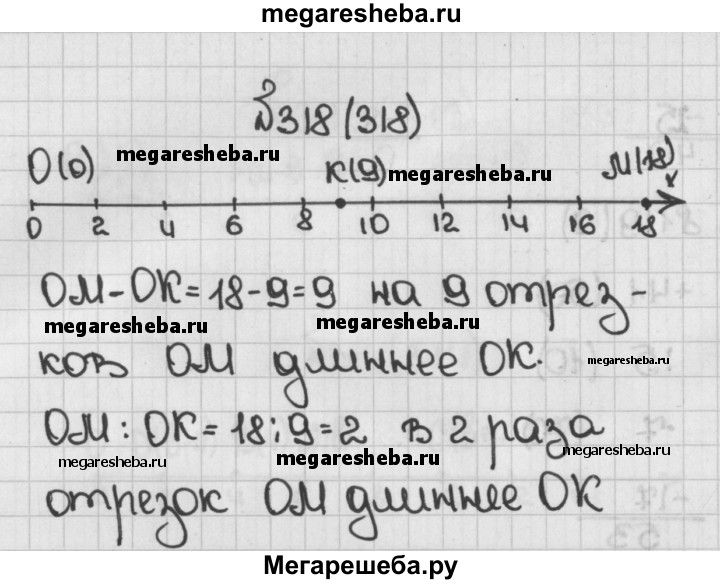 megaresheba.ru
№318 (318)
megaresheba.ru
O(0) K(9) megaresheba.ru M(18)
x
0 2 4 6 8 10 12 14 16 18
OM-OK=18-9=9 на 9 отрез-
megaresheba.ru megaresheba.ru
ков OM длиннее OK.
megaresheba.ru
OM:OK=18:9=2 в 2 раза
megaresheba.ru megaresheba.ru megaresheba.ru
отрезок OM длиннее OK
Мегарешеба.ру